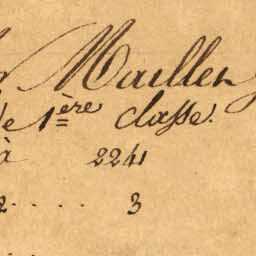 Maillen
de 1ère classe.
à 2241
2 .... 3